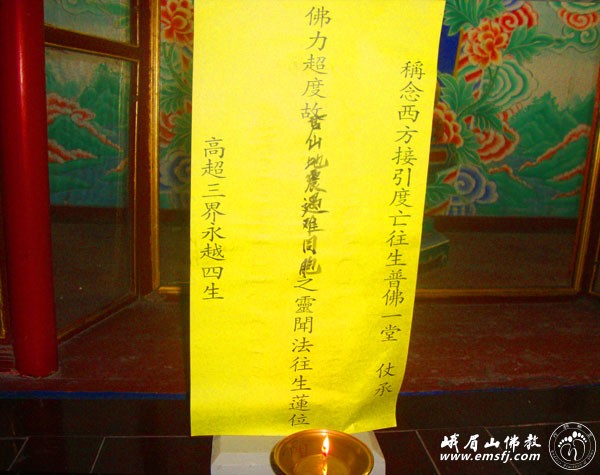 稱念西方接引度亡往生普佛一堂 仗承
佛力超度故芦山地震遇难同胞之靈聞法往生蓮位
高超三界永越四生
峨眉山佛教
www.emsfj.com